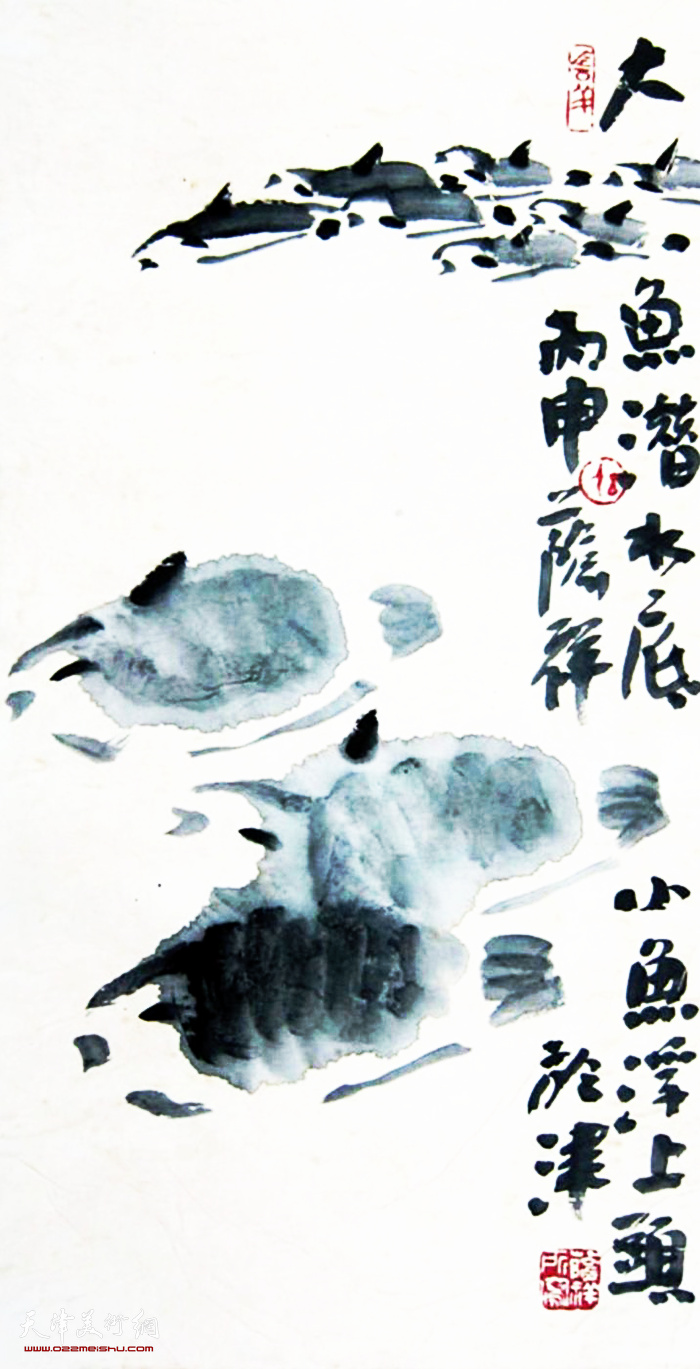 大魚潜水底小魚浮上頭
丙申蔭祥於津
蔭祥所為
天津美术网
www.022meishu.com